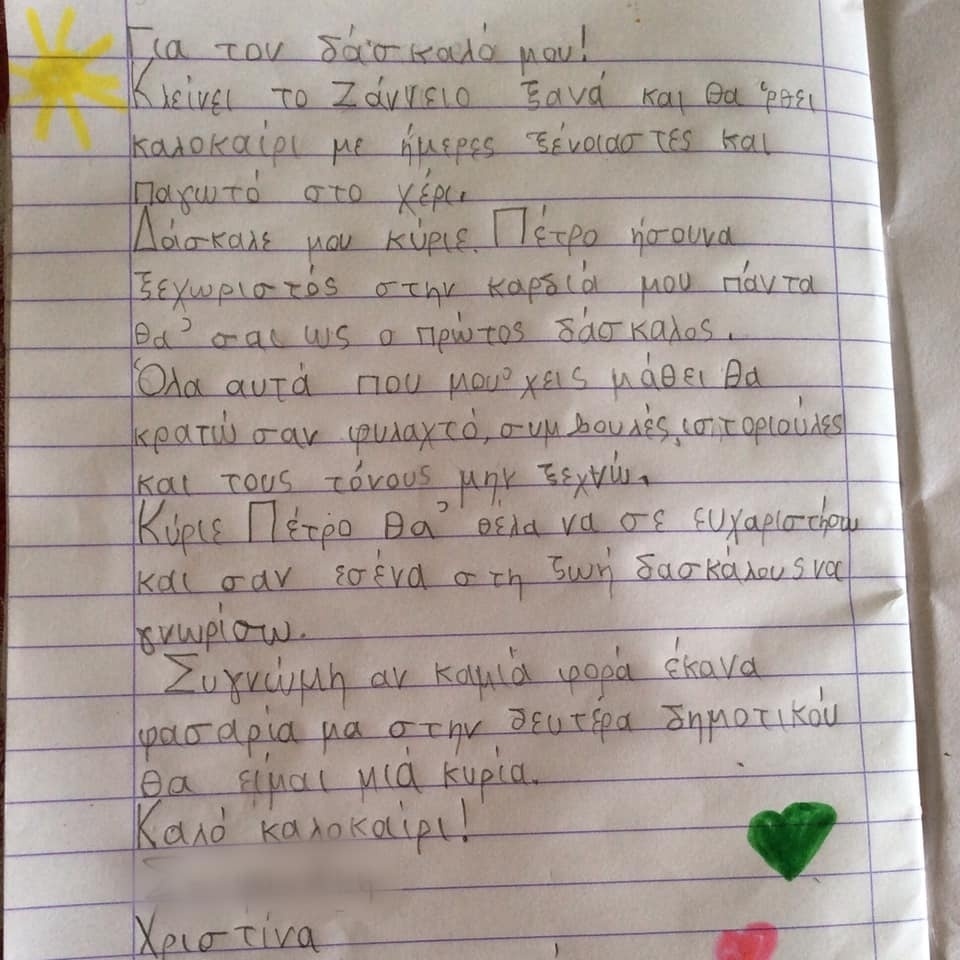 Για τον δάσκαλό μου!
Κλείνει το Ζάννειο ξανά και θα 'ρθει
καλοκαίρι με ήμερες ξένοιαστες και
παγωτό στο χέρι.
Δάσκαλε μου κύριε Πέτρο ήσουνα
ξεχωριστός στην καρδιά μου πάντα
θα 'σαι ως ο πρώτος δάσκαλος.
Όλα αυτά που μου 'χεις μάθει θα
κρατώ σαν φυλαχτό, συμβουλές, ιστοριούλες
και τους τόνους μην ξεχνώ.
Κύριε Πέτρο θα 'θελα να σε ευχαριστήσω
και σαν εσένα στη ζωή δασκάλους να
γνωρίσω.
Συγνώμη αν καμιά φορά έκανα
φασαρία μα στην δευτέρα δημοτικού
θα είμαι μιά κυρία.
Καλό καλοκαίρι!
Χριστίνα